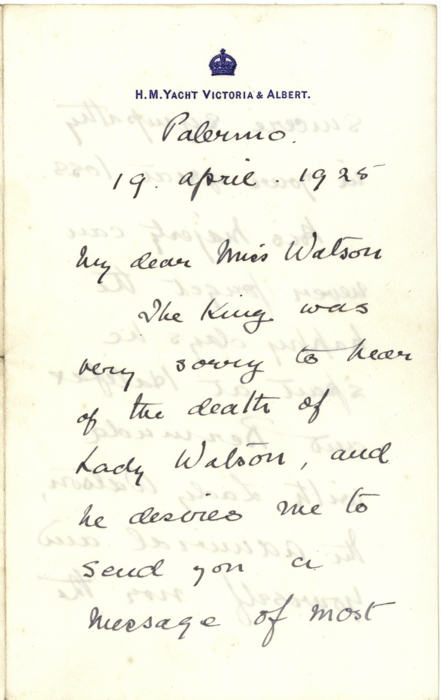 H.M. YACHT VICTORIA & ALBERT.
Palermo.
19. april. 1925
My dear Miss Watson
The King was
very sorry to hear
of the death of
Lady Watson, and
he desires me to
send you a
message of most